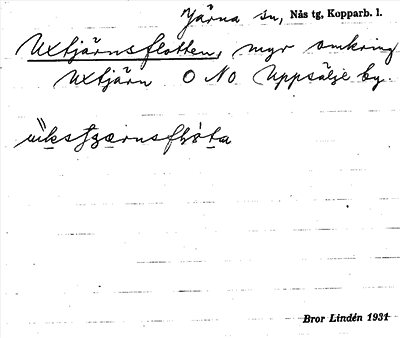 Järna sn, Nås tg, Kopparb. l.
Uxtjärnsflotten, myr omkring
Uxtjärn O No Uppsälje by.
Bror Lindén 1931